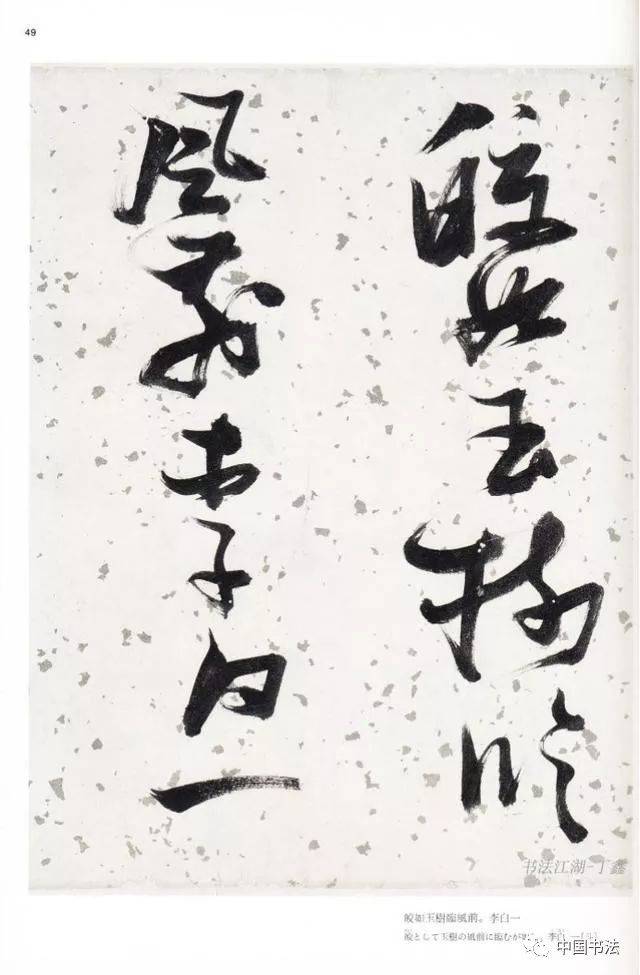 49
皎如玉樹臨
風前李白一
书法江湖-丁鑫
皎如玉樹臨風前。李白一
皎として玉樹の風前に臨むが 李白一
中国书法